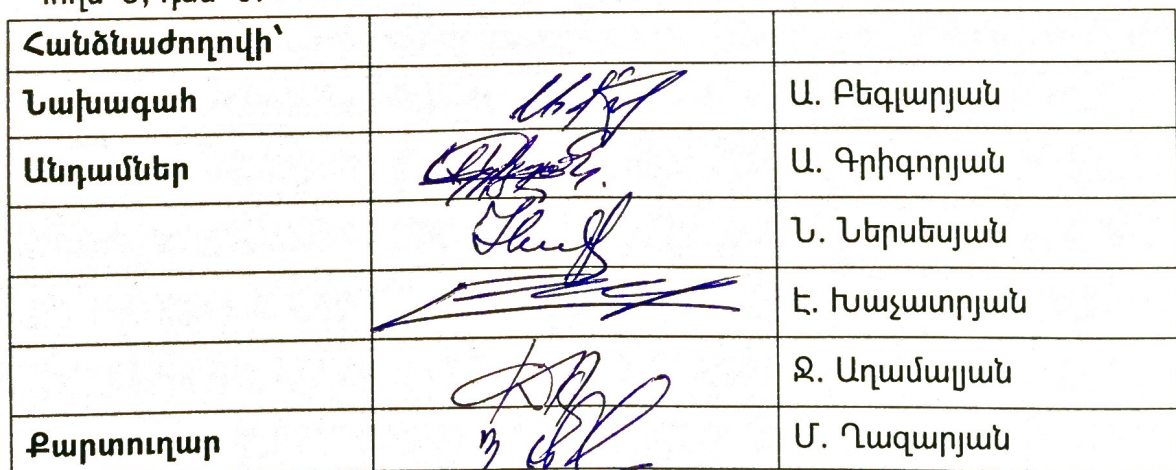 Հանձնաժողովի՝
Նախագահ Ա. Բեգլարյան
Անդամներ Ա. Գրիգորյան
Ն. Ներսեսյան
Է. Խաչատրյան
Ջ. Աղամալյան
Քարտուղար Մ. Ղազարյան